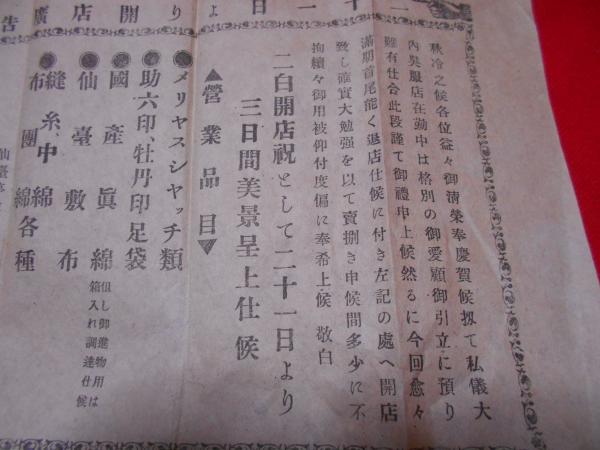 秋冷之候各位益々御淸榮奉慶賀候扨て私儀大
內吳服店在勤中は格別の御愛顧御引立に預り
難有仕合此段謹て御禮申上候然るに今回愈々
滿期首尾能く退店仕候に付き左記の處へ開店
致し確實大勉强を以て賣捌き申候間多少に不
拘續々御用被仰付度偏に奉希上候 敬白
二白開店祝として二十一日より
三日間美景呈上仕候
▲營業品目▼
●メリヤスシヤッチ類
●助六印、牡丹印足袋
●國產眞綿
但し御進物用は
箱入れ調達仕候
●仙臺敷布
●縫糸、中綿
布團綿各種
り開店廣告